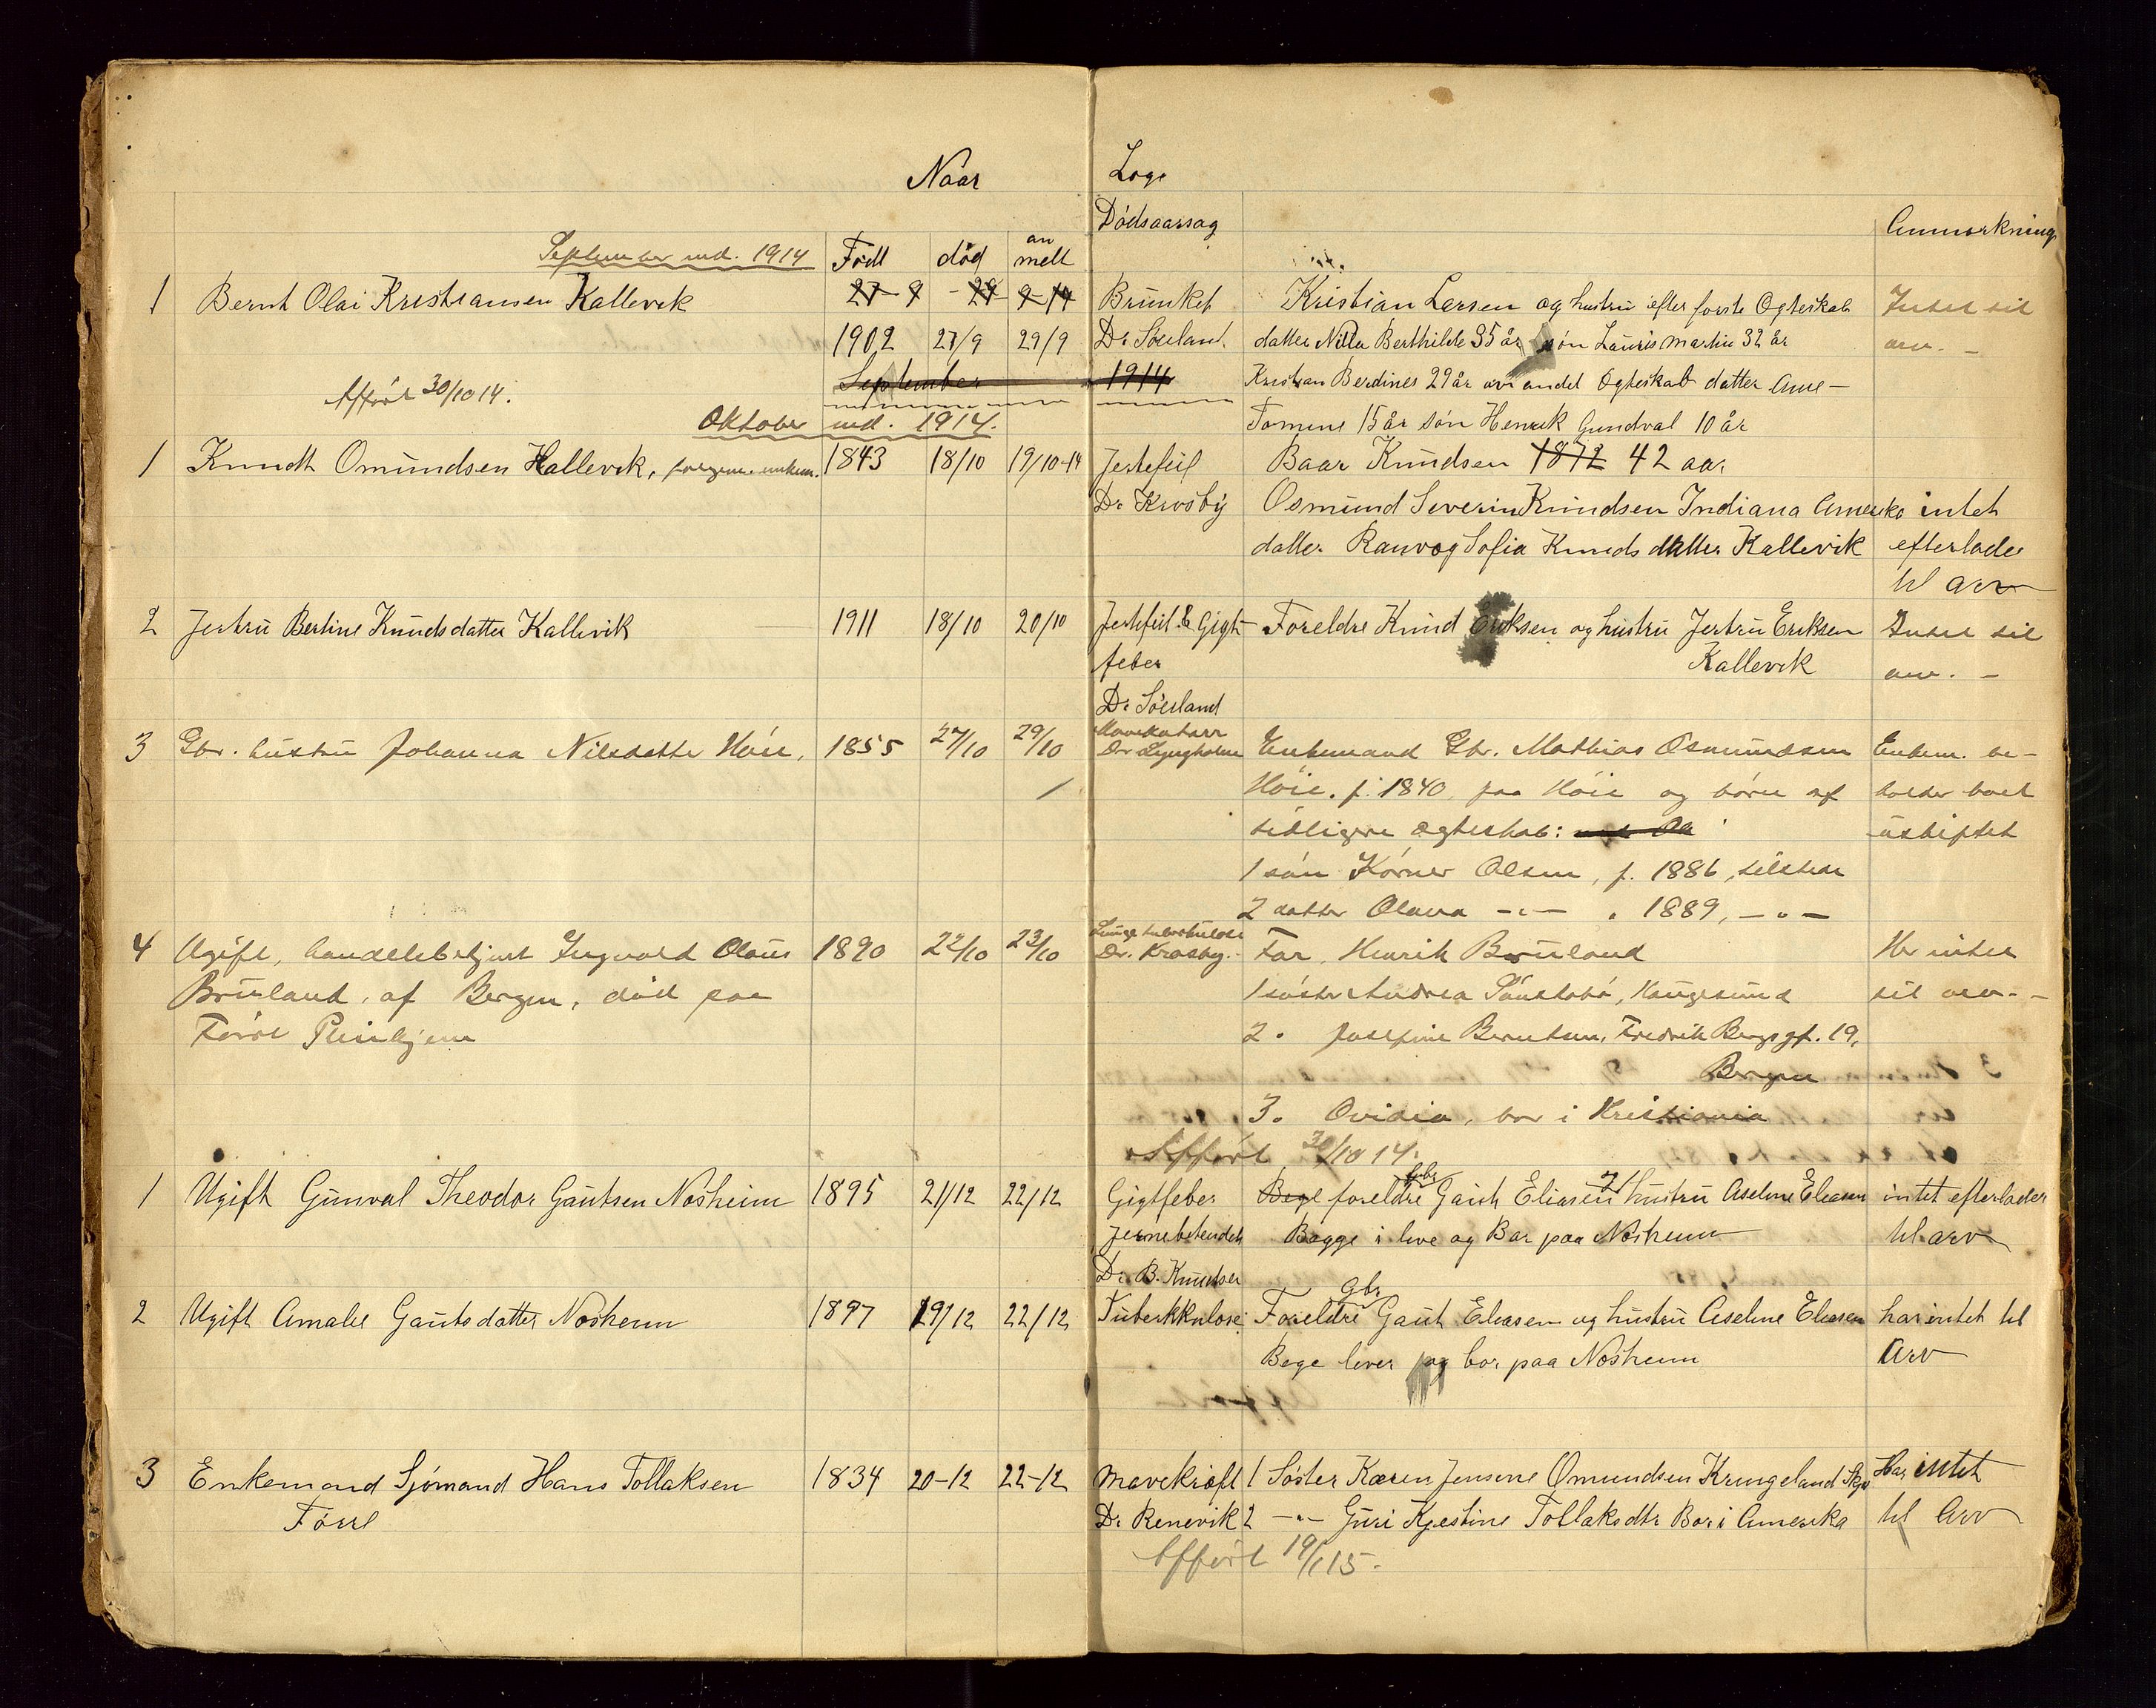 Naar Loge
Dödsaarsag Anmerkning
September md. 1914 Född död an mell
1 Bernt Olai Kristiansen Kallevik 27-9 - 29- 9-14 Brunket Kristian Larsen og hustru efter forste Ogteskab Intet til
1902 27/9 29/9 Dr Söeland. datter Nilla Berthilde 35 år søn Lauris Martin 32 år arv. -
September 1914 Kristian Berdines 29 år av andet Ogteskab datter Ane -
Afført 30/10 14. Tomine 15 år søn Henrik Gundval 10 år
Oktober md. 1914.
1 Knudt Omundsen Kallevik, 1843 18/10 19/10-14 Jertefeil Baar Knudsen 1872 42 aar
Dr Krosby Osmund Severin Knudsen Indiana Amerika intet
datter Ranvog Sofia Knudsdatter Kallevik efterlader
til arv
2 Jertru Bertine Knudsdatter Kallevik 1911 18/10 20/10 Jertefeil & Gigt- Foreldre Knud Eriksen og hustru Jertru Eriksen Intet til
feber Kallevik arv. -
Dr Söeland
3 Gbr. hustru Johanna Nilsdatter Höie, 1855 27/10 29/10 Mavekatarr Enkemand Gbr. Mathias Osmundsen Enkem. be-
Dr Lyngholm Höie. f. 1840 paa Höie og börn af holder boet
tidligere ægteskab: uskiftet
1 sön Körner Olsen, f. 1886, tilstede
2 datter Olava -"- " 1889, -"-
4 Ugift, handelsbetjent Ingvald Olaus 1890 22/10 23/10 Lungetuberkulose Far, Henrik Bruland Har intet
Bruland, af Bergen, död paa Dr. Krosby. 1 söster Andrea, Haugesund til arv. -
Förre Pleiehjem 2. Josefine Berntsen, Fredrik Bergs gt. 19,
Bergen
3. Ovidia, bor i Kristiania
Afført 30/10 14.
1 Ugift Gunval Theodor Gautsen Nosheim 1895 21/12 22/12 Gigtfeber Bege foreldre Gbr Gaut Eliasen og hustru Aseline Eliasen intet efterlader
Jernebetendels Begge i live og Bor paa Nosheim til arv
Dr B. Knudsen
2 Ugift Amalie Gautsdatter Nosheim 1897 19/12 22/12 Tuberkkulose Foreldre Gbr Gaut Eliasen og hustru Aseline Eliasen har intet til
Bege lever og bor paa Nosheim Arv
3 Enkemand Sjömand Hans Tollaksen 1834 20-12 22-12 Mavekræft 1 Söster Karen Jensine Omundsen Kringeland Skjo Har intet
Förre Dr Renevik 2 -"- Guri Kjestine Tollaksdtr Bor i Amerika til Arv
Afført 19/1 15.